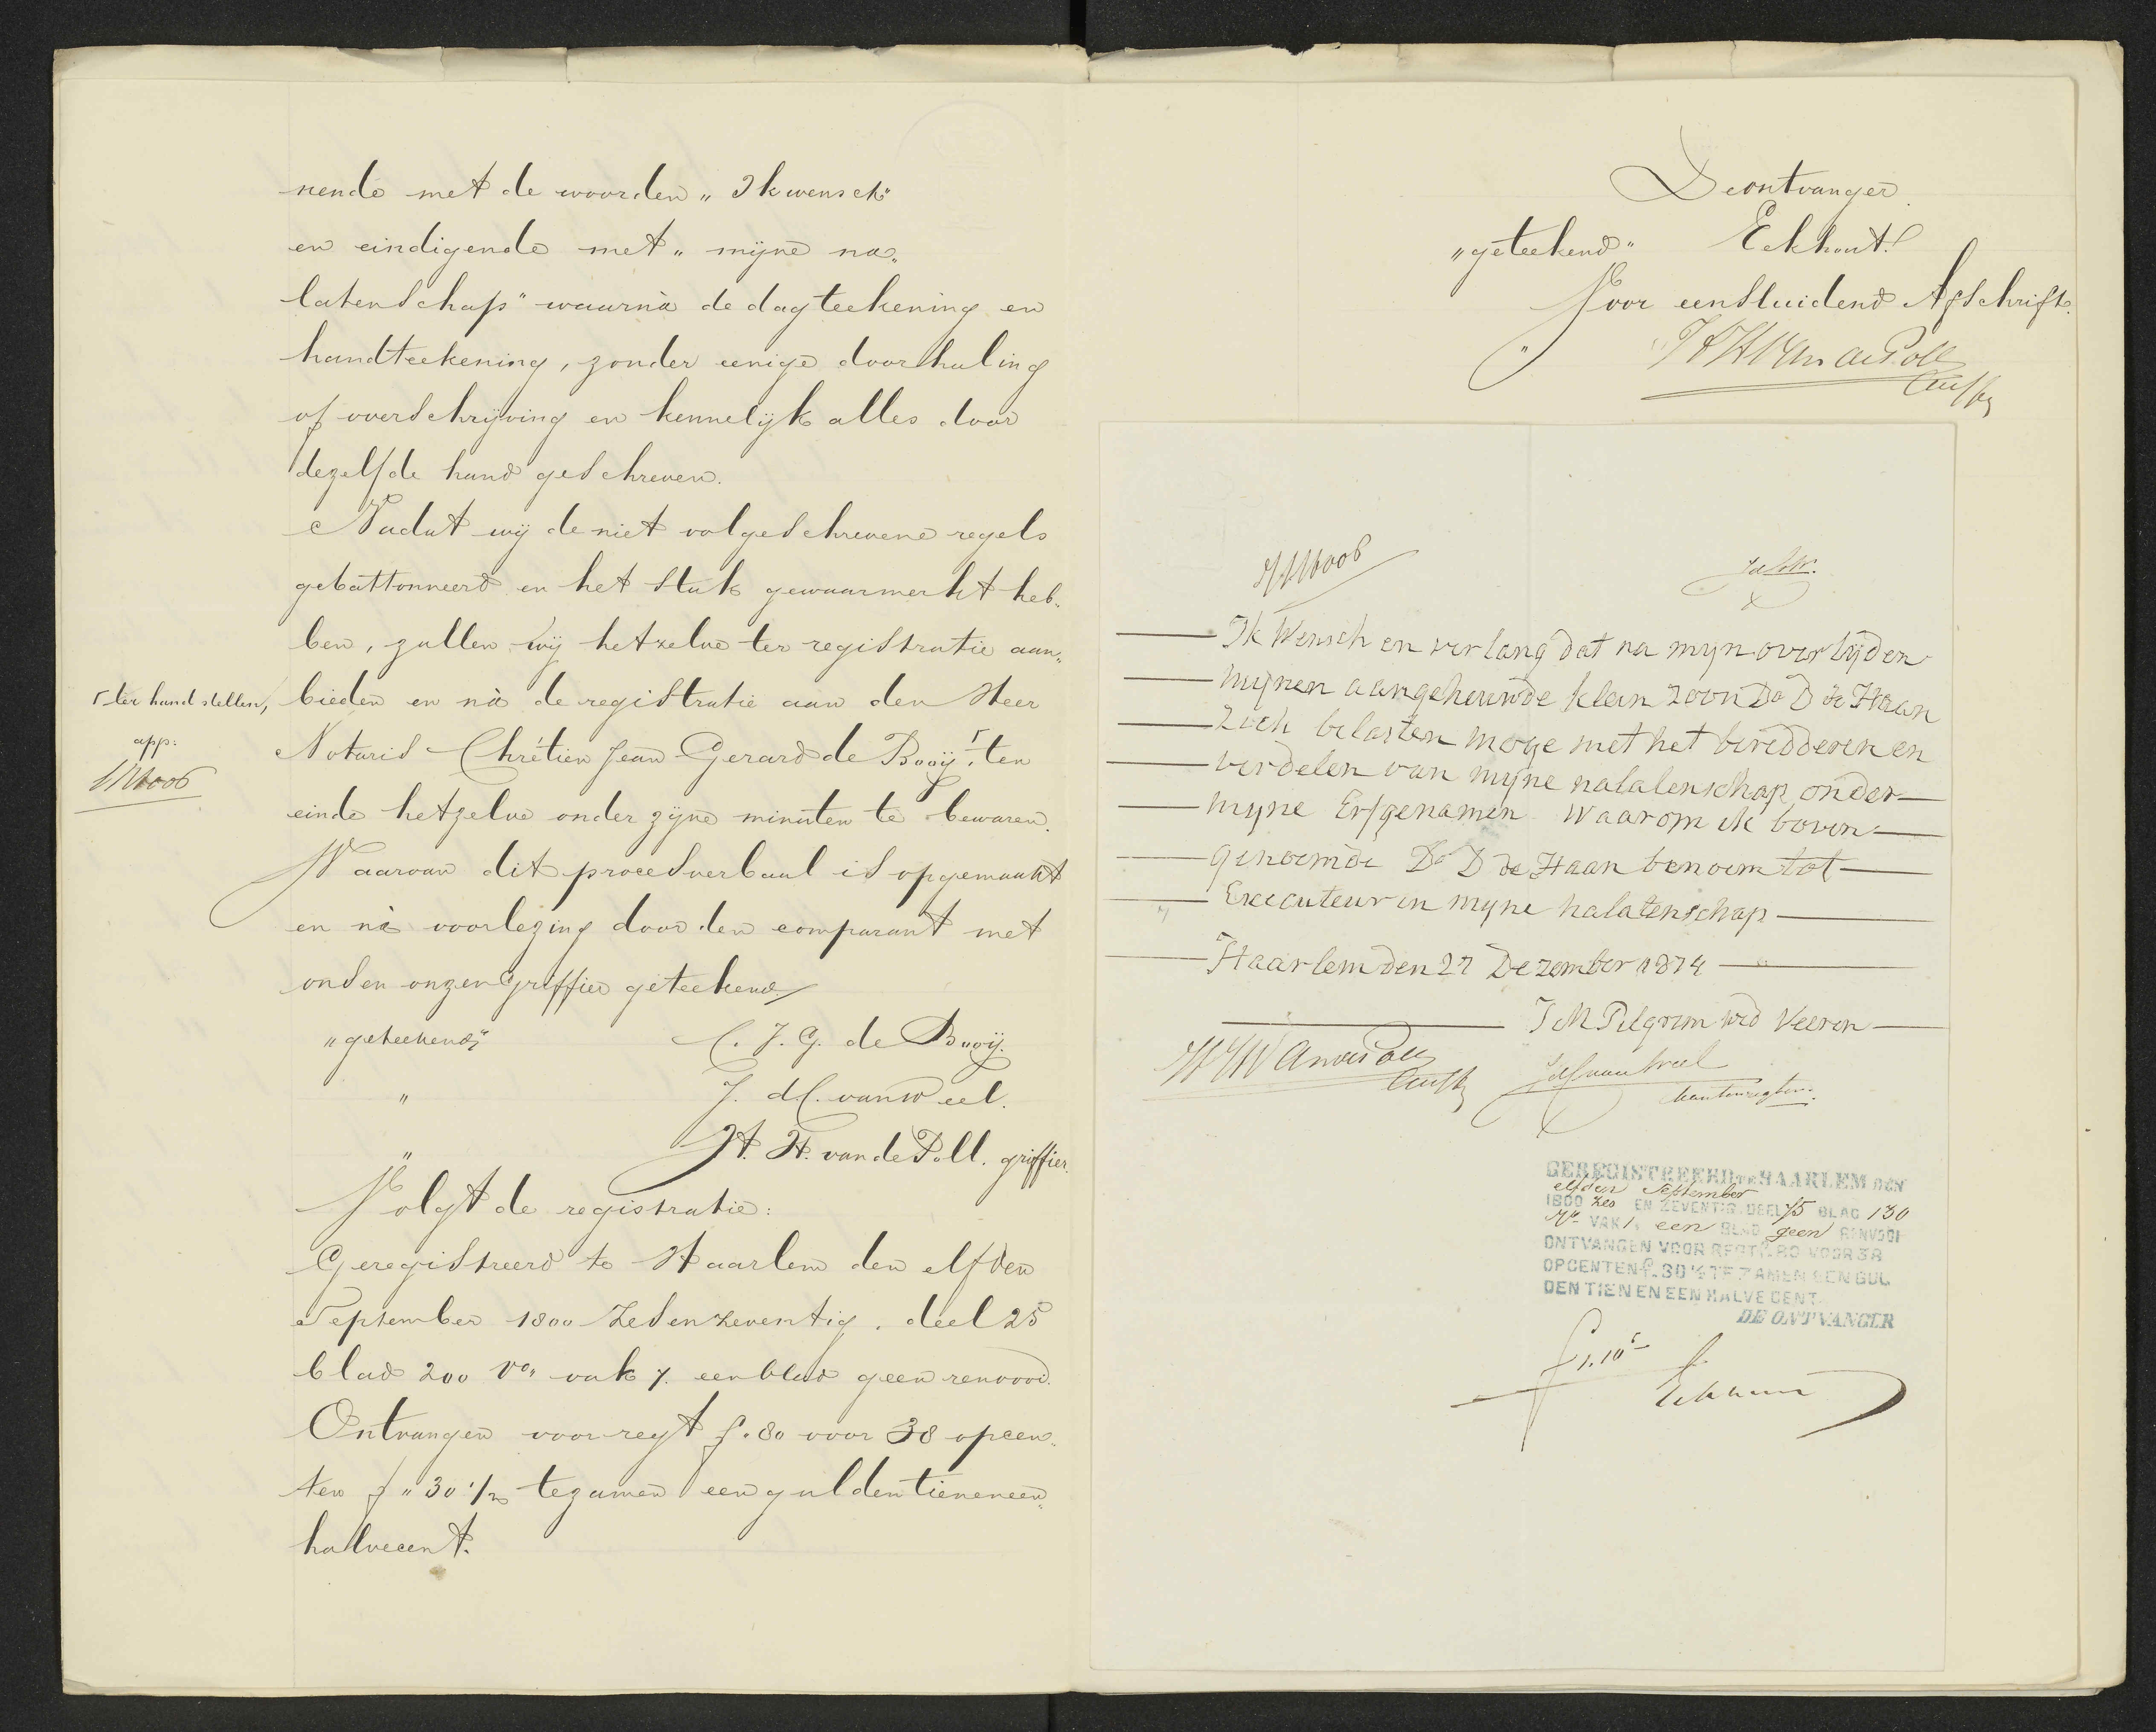 nende met de woorden „Ik wensch"
en eindigende met „mijne na„
latenschap" waarnà de dagteekening en
handteekening, zonder eenige doorhaling
of overschrijving en kennelijk alles door
dezelfde hand geschreven.
Nadat wij de niet volgeschrevene regels
gebattonneerd en het stuk gewaarmerkt heb„
ben, zullen wij hetzelve ter registratie aan„
bieden en nà de registratie aan den Heer
Notaris Chrétien Jean Gerard de Booij ⌈ ten
⌈ ter hand stellen,
app:
einde hetzelve onder zijne minuten te bewaren.
Waarvan dit procesverbaal is opgemaakt
en nà voorlezing door den comparant met
ons en onzen Griffier geteekend
„geteekend" C. J. G. de Booij.
" J. d C. van Weel.
" H. H. van de Poll. griffier.
Volgt de registratie:
Geregistreerd te Haarlem den elfden
September 1800 zesenzeventig. deel 25
blad 200 Vo, vak 7. een blad geen renvooi.
Ontvangen voor regt f. 80 voor 38 opcen„
ten f „ 30 1/2 tezamen een gulden tieneneen„
halvecent.
De ontvanger
„geteekend" Eekhout
Voor eensluidend Afschrift.
HHVan de Poll
Griffier
Ik Wensch en verlang dat na mijn overlijden
mijnen aangehuwde klein zoon Do D de Haan
zich belasten moge met het beredderen en
verdelen van mijne nalatenschap onder
mijne Erfgenamen Waarom ik boven
genoemde Do D de Haan benoem tot
Executeur in mijne nalatenschap
Haarlem den 27 Dezember 1874
J M Pelgrim wed Veeren
HHVan de Poll
Griffier
JdCvanWeel
Kantonregter.
GEREGISTREERD TE HAARLEM DEN
elfden September
1800 zes EN ZEVENTIG. DEEL 75 BLAD 130
Vo VAK 1, een BLAD geen RENVOOI
ONTVANGEN VOOR REGT f.80 VOOR 38
OPCENTEN f.30½ TE ZAMEN EEN GUL
DEN TIEN EN EEN HALVE CENT.
DE ONTVANGER
f 1.10⁵
Eekhout